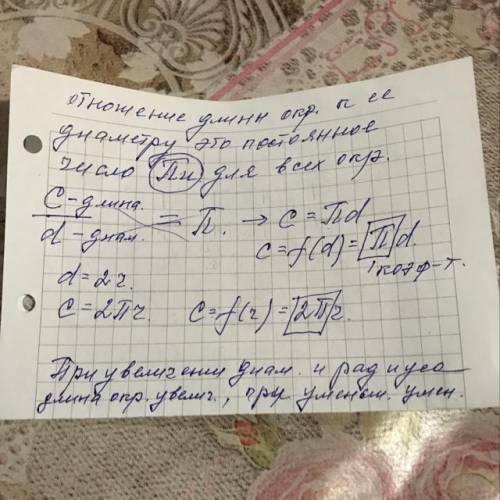 отношение длинн окр. к ее
диаметру это постоянное
число Пи для всех окр.
C - длина. / d - диам. = П. → C = Пd
C = f(d) = П d.
коэф-т.
d = 2r.
C = 2Пr. C = f(r) = 2П r.
При увеличении диам. и радиуса
длина окр. увелич., при уменьш. умен.